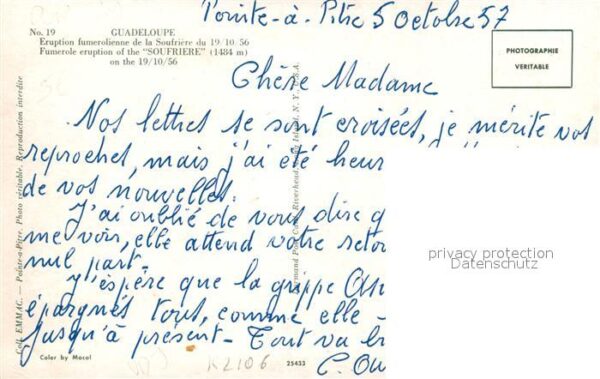 Pointe-à-Pitre 5 Octobre 57
No. 19 GUADELOUPE
Eruption fumerolienne de la Soufrière du 19/10 56
Fumerole eruption of the "SOUFRIERE" (1484 m)
on the 19/10/56
PHOTOGRAPHIE
VERITABLE
Chère Madame
Nos lettres se sont croisées, je mérite vos
reproches, mais j'ai été heur
de vos nouvelles.
J'ai oublié de vous dire q
me voir, elle attend votre retor
nul part.
J'espère que la grippe Asi
épargnés tous, comme elle
jusqu'à présent - Tout va br
C. Ou
privacy protection
Datenschutz
Coll. EMMAC. — Pointe-a-Pitre. Photo véritable. Reproduction interdite
Color by Mocol
K2106
25453